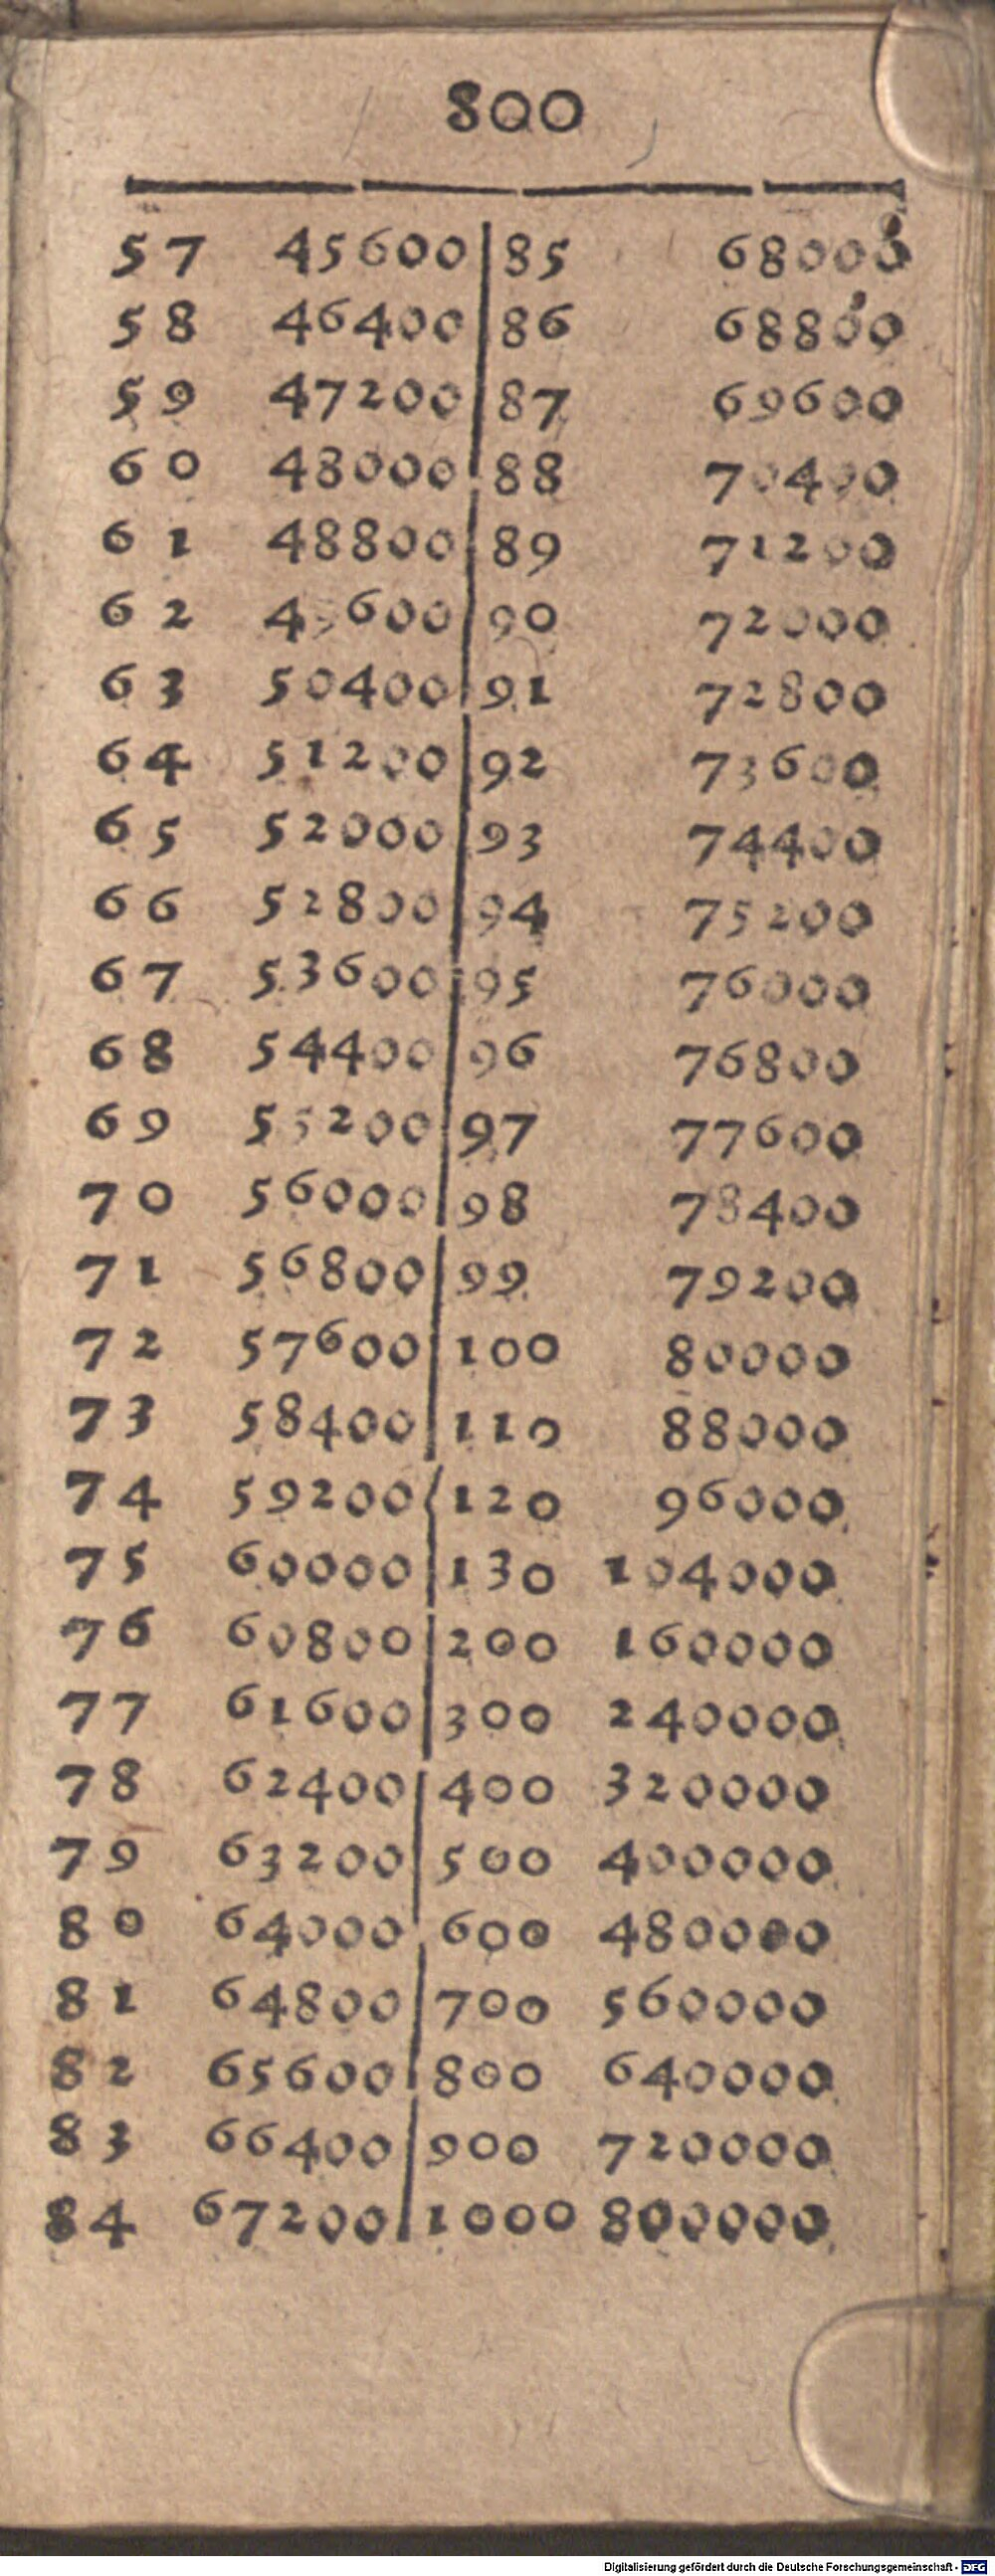 800
57 45600 85 68000
58 46400 86 68800
59 47200 87 69600
60 48000 88 70400
61 48800 89 71200
62 49600 90 72000
63 50400 91 72800
64 51200 92 73600
65 52000 93 74400
66 52800 94 75200
67 53600 95 76000
68 54400 96 76800
69 55200 97 77600
70 56000 98 78400
71 56800 99 79200
72 57600 100 80000
73 58400 110 88000
74 59200 120 96000
75 60000 130 104000
76 60800 200 160000
77 61600 300 240000
78 62400 400 320000
79 63200 500 400000
80 64000 600 480000
81 64800 700 560000
82 65600 800 640000
83 66400 900 720000
84 67200 1000 800000
Digitalisierung gefördert durch die Deutsche Forschungsgemeinschaft - DFG